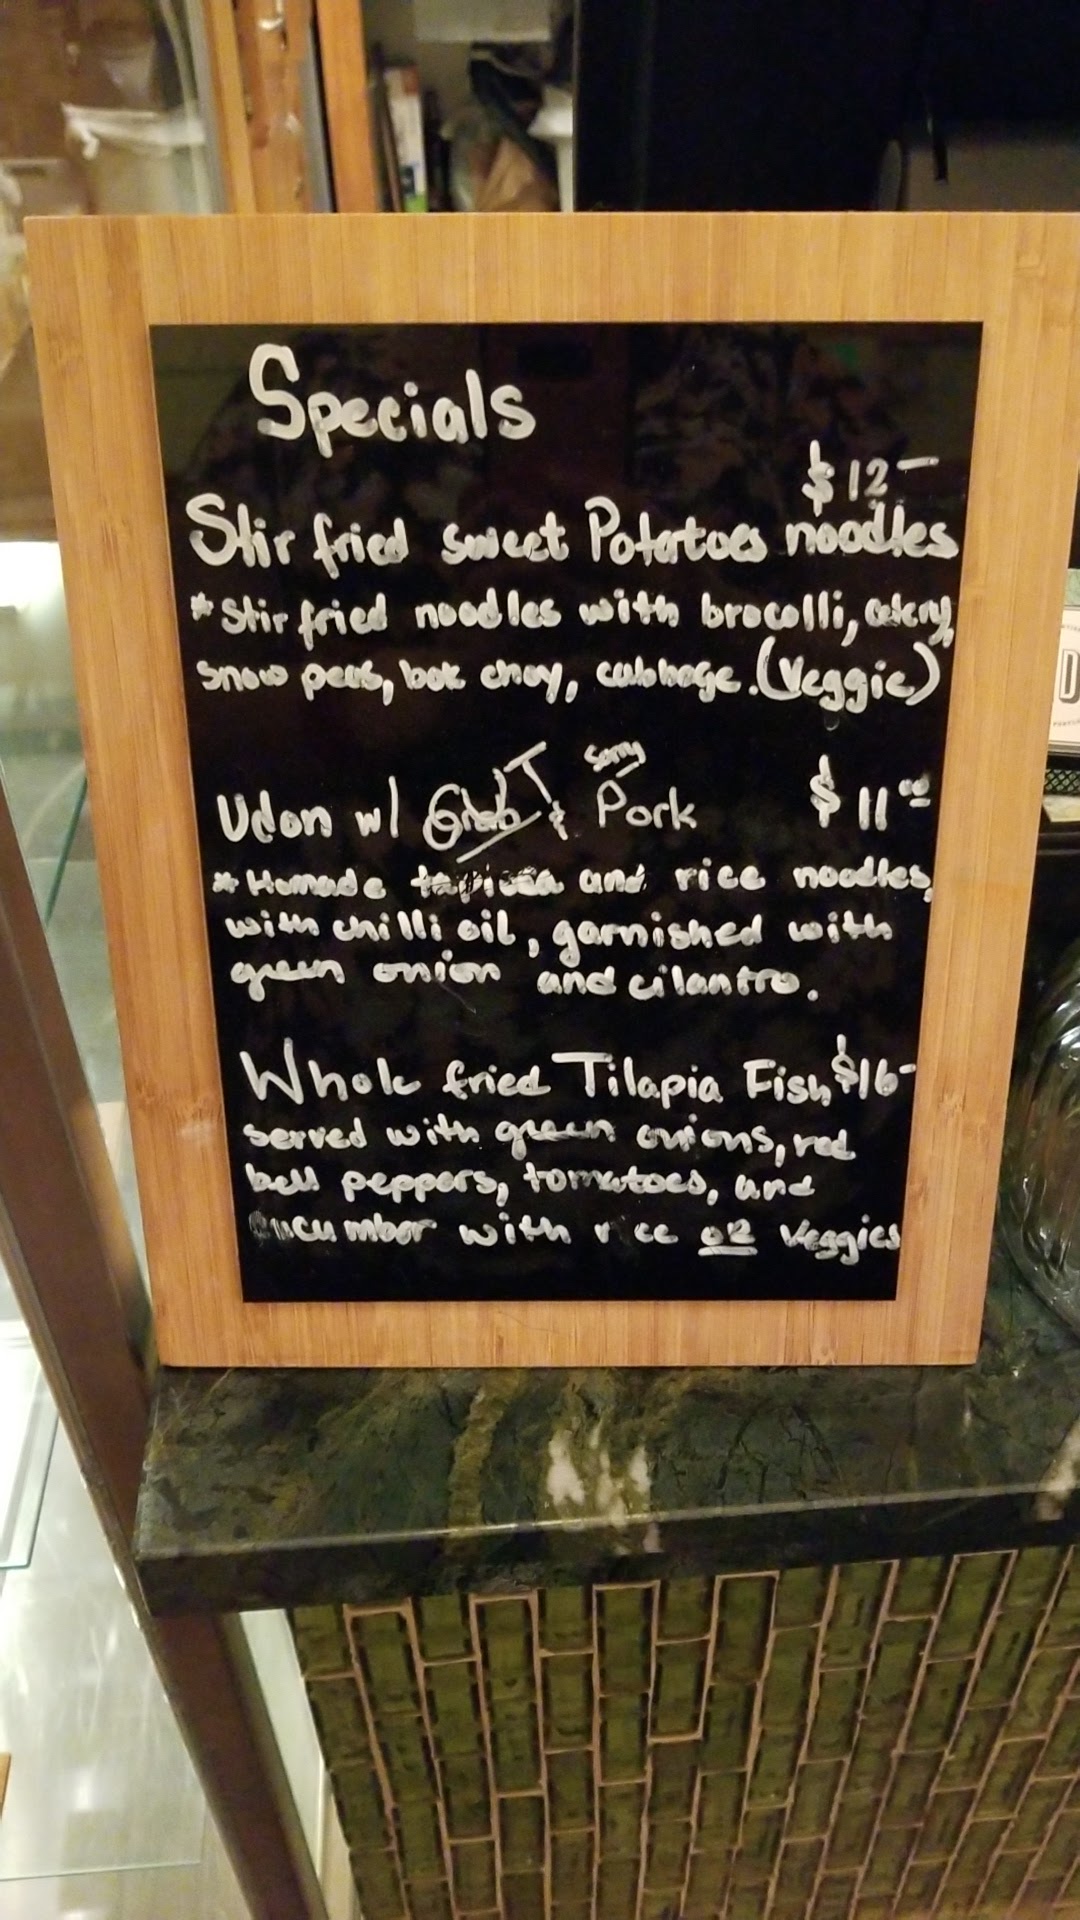 Specials
$12-
Stir fried sweet Potatoes noodles
*Stir fried noodles with brocolli, celery,
snow peas, bok choy, cabbage. (Veggie)
Sorry
Udon w/ & Pork $11.00
* Homade tapioca and rice noodles,
with chilli oil, garnished with
green onion and cilantro.
Whole fried Tilapia Fish, $16-
served with green onions, red
bell peppers, tomatoes, and
cucumber with rice OR veggies
D